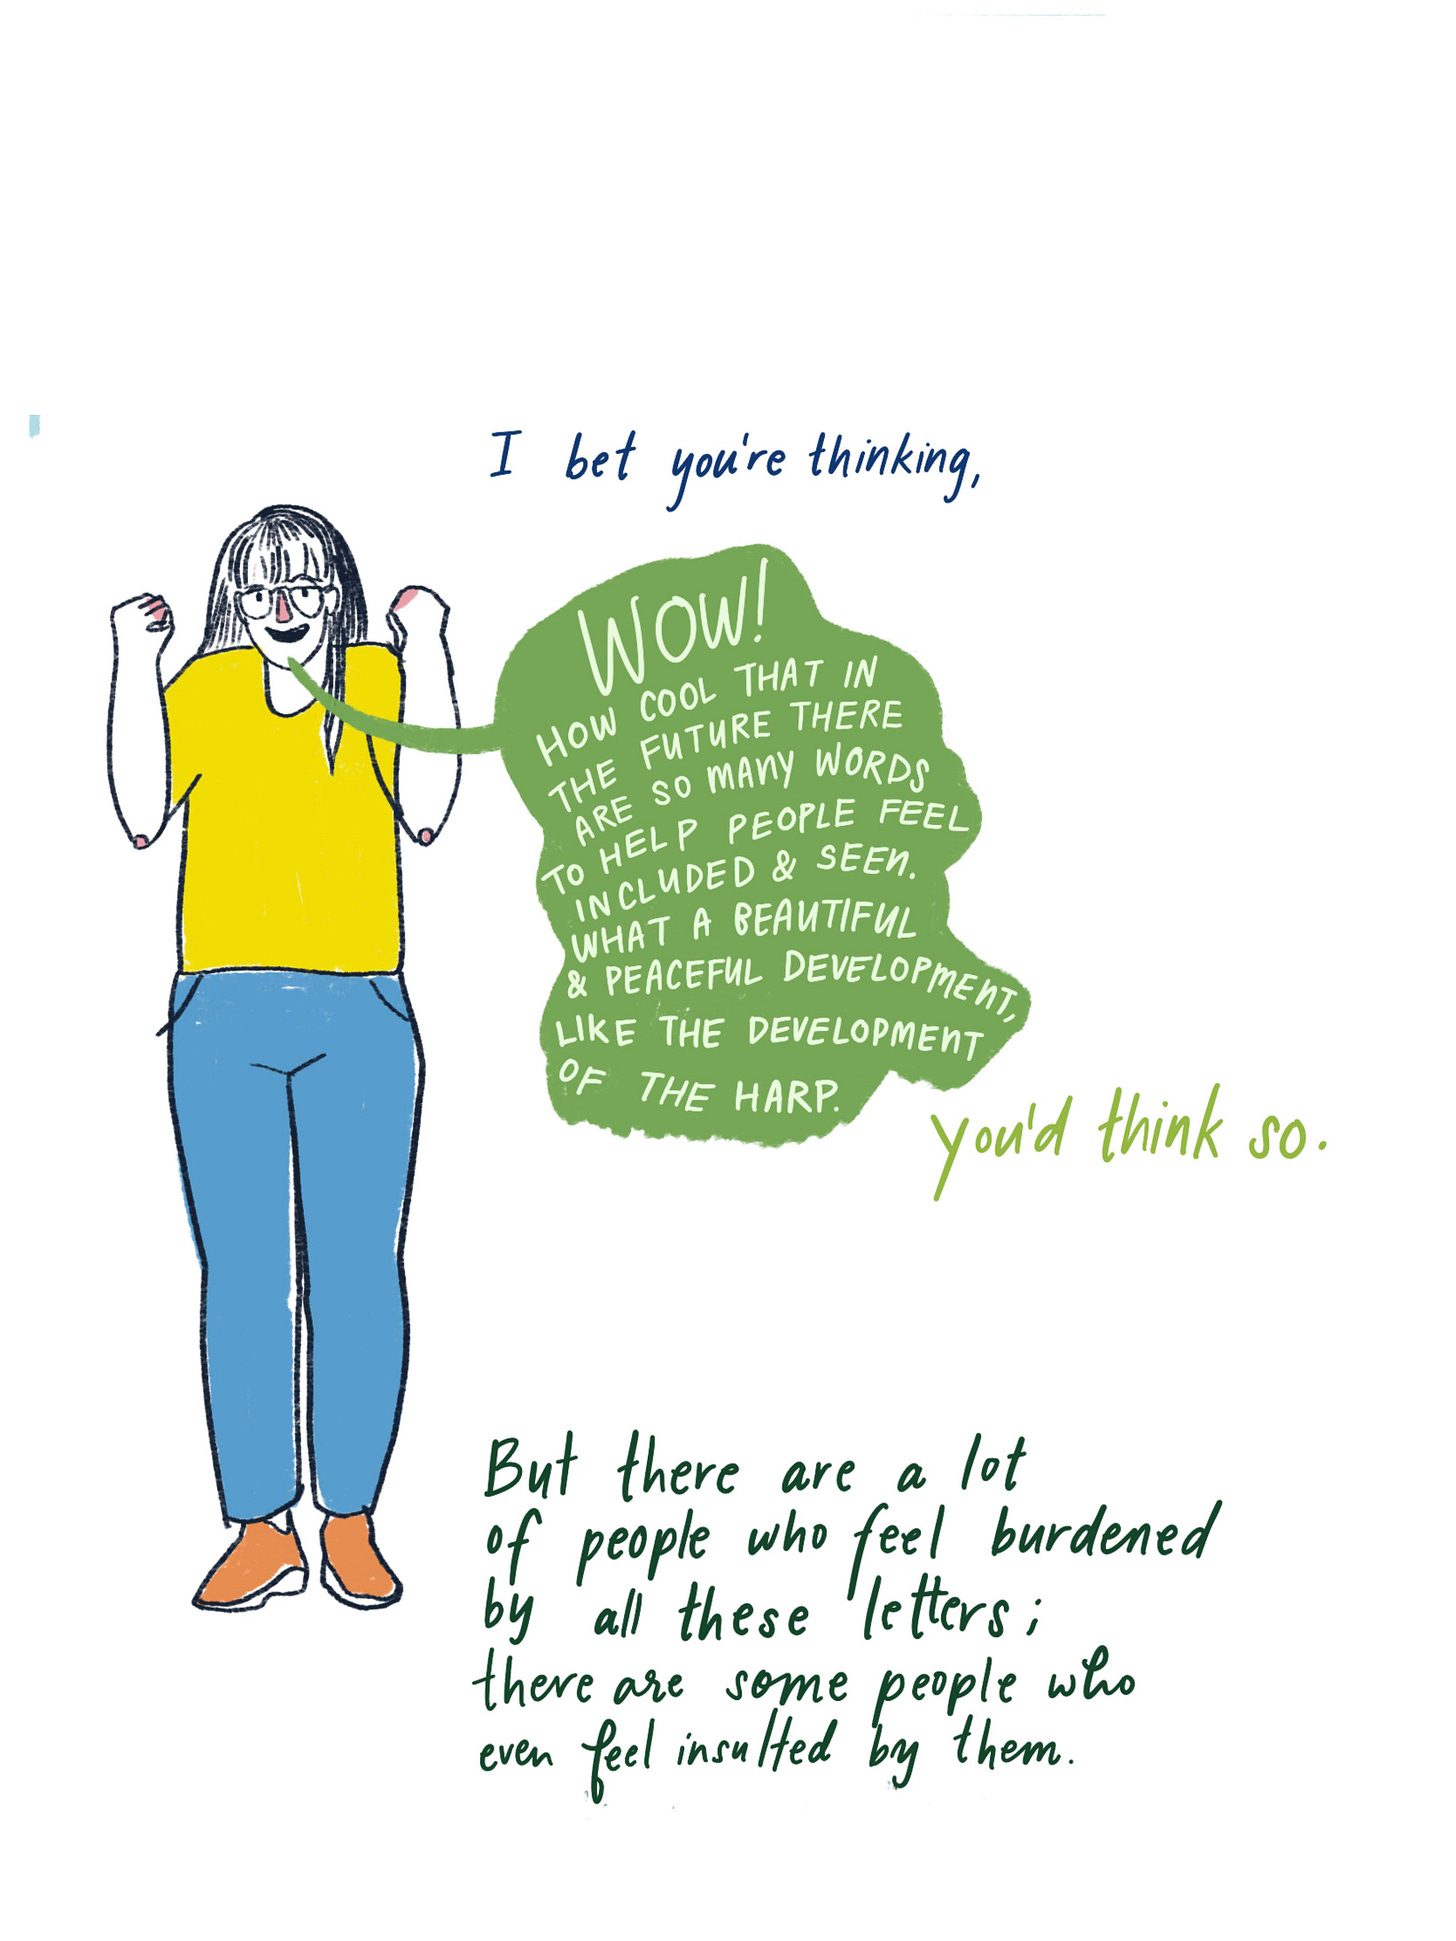 I bet you're thinking,
WOW!
HOW COOL THAT IN
THE FUTURE THERE
ARE SO MANY WORDS
TO HELP PEOPLE FEEL
INCLUDED & SEEN.
WHAT A BEAUTIFUL
& PEACEFUL DEVELOPMENT,
LIKE THE DEVELOPMENT
OF THE HARP.
You'd think so.
But there are a lot
of people who feel burdened
by all these letters;
there are some people who
even feel insulted by them.